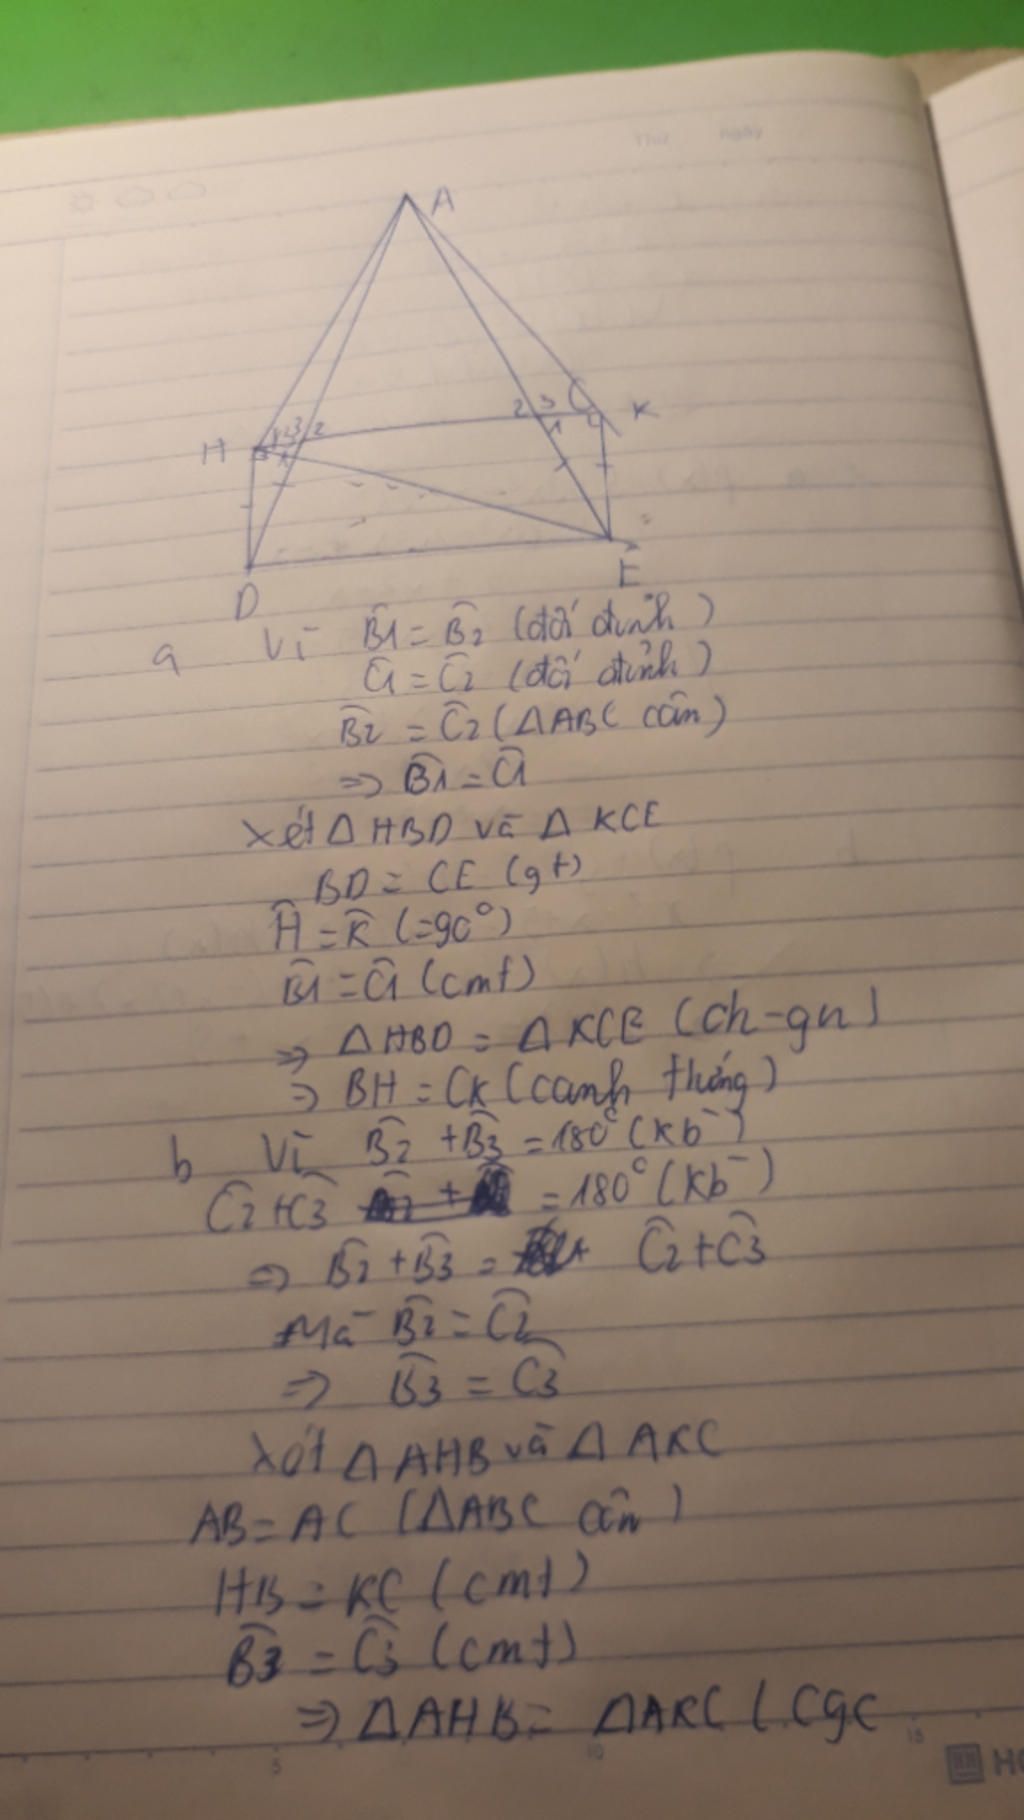 Thứ ngày
A
H 1 2 3 2 2 3 1 K
D E
a Vì B̂1 = B̂2 (đối đỉnh)
Ĉ1 = Ĉ2 (đối đỉnh)
B̂2 = Ĉ2 (ΔABC cân)
=> B̂1 = Ĉ1
Xét Δ HBD và Δ KCE
BD = CE (gt)
Ĥ = K̂ (=90°)
B̂1 = Ĉ1 (cmt)
=> Δ HBD = Δ KCE (ch-gn)
=> BH = CK (canh tứng)
b Vì B̂2 + B̂3 = 180° (kb)
Ĉ2 + Ĉ3 = 180° (kb)
=> B̂2 + B̂3 = Ĉ2 + Ĉ3
Mà B̂2 = Ĉ2
=> B̂3 = Ĉ3
Xét Δ AHB và Δ AKC
AB = AC (ΔABC cân)
HB = KC (cmt)
B̂3 = Ĉ3 (cmt)
=> ΔAHB = ΔAKC (cgc
5 10 15